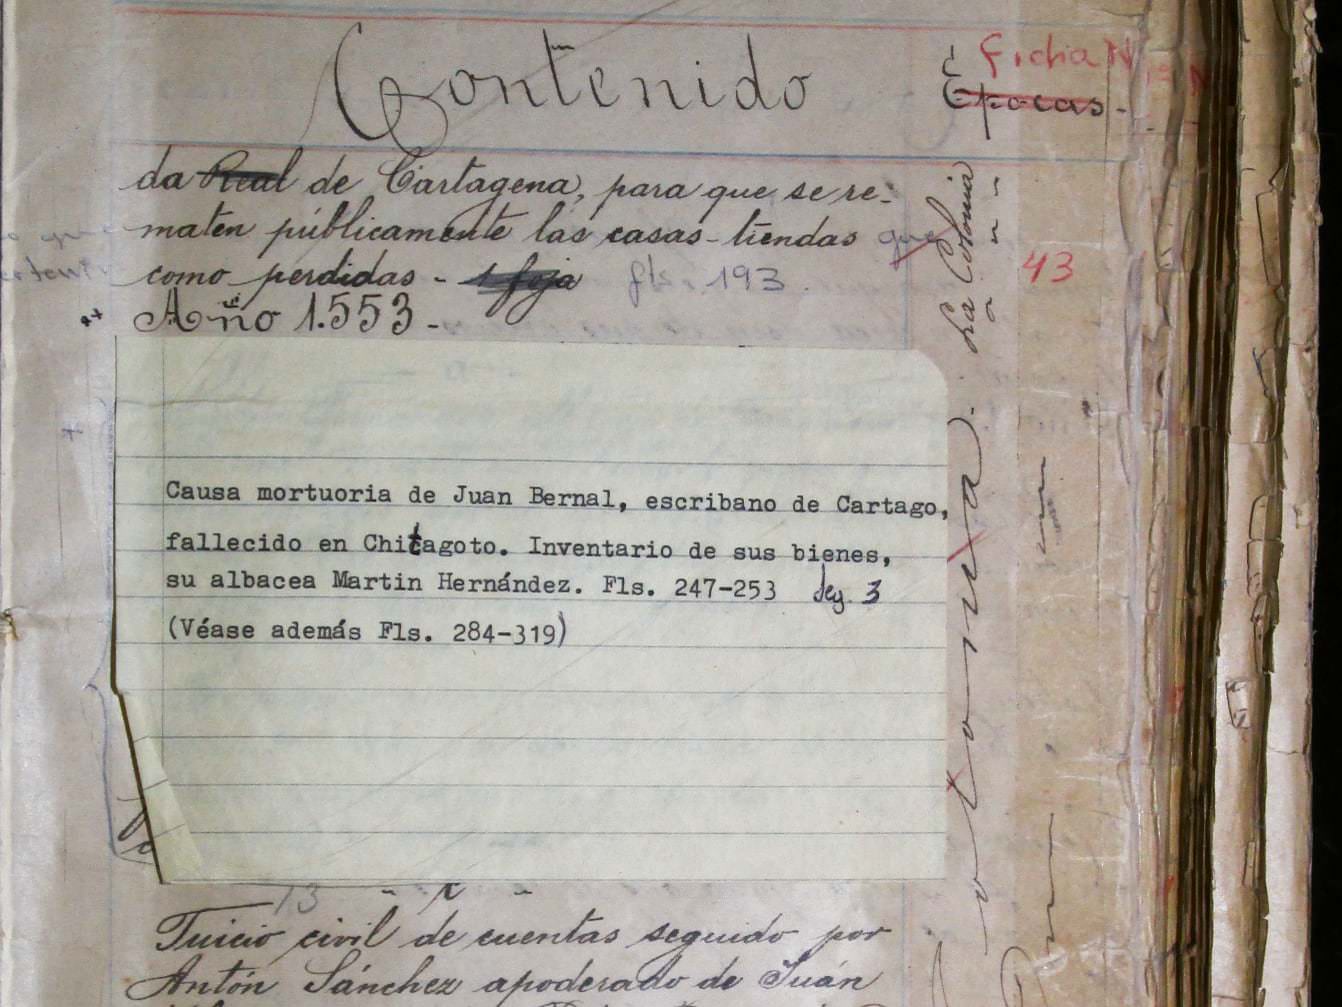 Contenido
Ficha N
Epocas.
da Real de Cartagena, para que se re-
maten públicamente las casas-tiendas que
como perdidas - 1 foja fls. 193.
Año 1.553.-
La Colonia
43
Causa mortuoria de Juan Bernal, escribano de Cartago,
fallecido en Chitagoto. Inventario de sus bienes,
su albacea Martin Hernández. Fls. 247-253 Leg. 3
(Véase además Fls. 284-319)
13
Juicio civil de cuentas seguido por
Antón Sánchez apoderado de Juán